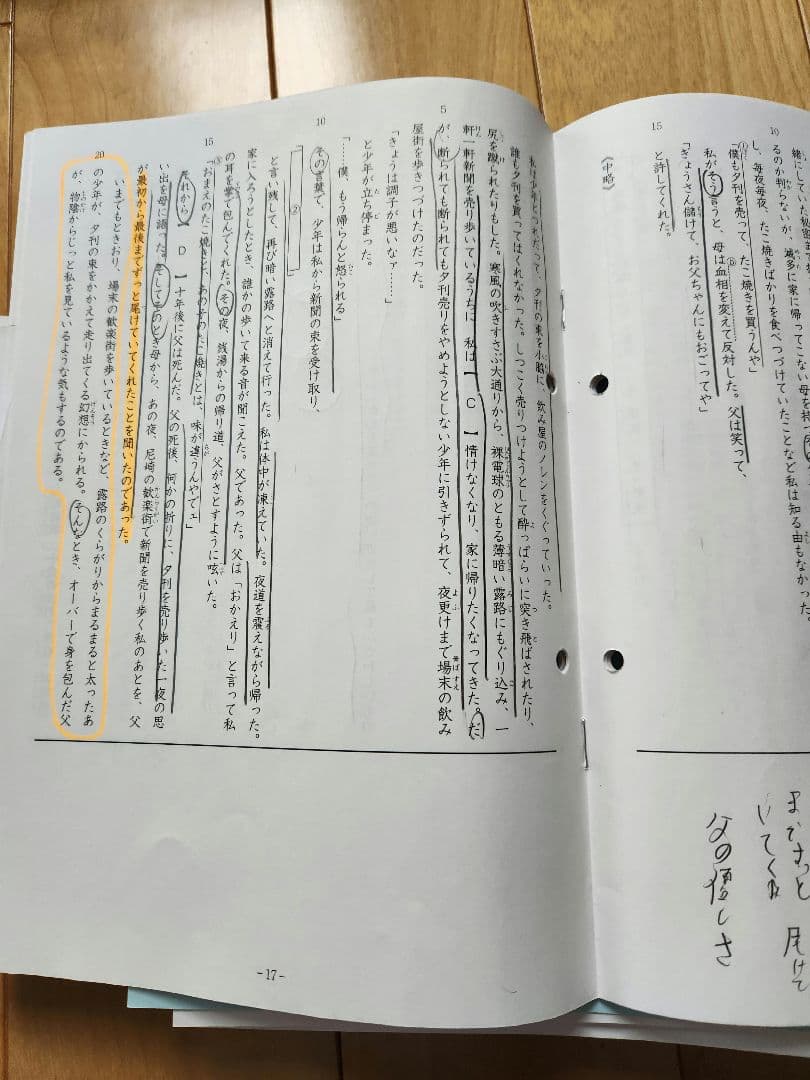 緒にしていた
るのか判らないが、滅多に家に帰ってこない母を待
し、毎夜毎夜、たこ焼きばかりを食べつづけていたことなど私は知る由もなかった。
「僕も夕刊を売って、たこ焼きを買うんや」
私がそう言うと、母は血相を変えて反対した。父は笑って、
「ぎょうさん儲けて、お父ちゃんにもおごってや」
と許してくれた。
《中略》
10
15
まで ずっと 尾けて
いてくれ
父の優しさ
私は少年とつれだって、夕刊の束を小脇に、飲み屋のノレンをくぐっていった。
誰も夕刊を買ってはくれなかった。しつこく売りつけようとして酔っぱらいに突き飛ばされたり、
尻を蹴られたりもした。寒風の吹きすさぶ大通りから、裸電球のともる薄暗い露路にもぐり込み、一
軒一軒新聞を売り歩いているうちに、私は【 C 】情けなくなり、家に帰りたくなってきた。だ
が、断られても断られても夕刊売りをやめようとしない少年に引きずられて、夜更けまで場末の飲み
屋街を歩きつづけたのだった。
「きょうは調子が悪いなァ……」
と少年が立ち停まった。
「……僕、もう帰らんと怒られる」
その言葉で、少年は私から新聞の束を受け取り、
②
と言い残して、再び暗い露路へと消えて行った。私は体中が凍えていた。夜道を震えながら帰った。
家に入ろうとしたとき、誰かの歩いて来る音が聞こえた。父であった。父は「おかえり」と言って私
③の耳を掌で包んでくれた。その夜、銭湯からの帰り道、父がさとすように呟いた。
「おまえのたこ焼きと、あの子のたこ焼きとは、味が違うんやでェ」
それから【 D 】十年後に父は死んだ。父の死後、何かの折りに、夕刊を売り歩いた一夜の思
い出を母に語った。そしてそのとき母から、あの夜、尼崎の歓楽街で新聞を売り歩く私のあとを、父
が最初から最後までずっと尾けていてくれたことを聞いたのであった。
いまでもときおり、場末の歓楽街を歩いているときなど、露路のくらがりからまるまると太ったあ
の少年が、夕刊の束をかかえて走り出てくる幻想にかられる。そんなとき、オーバーで身を包んだ父
が、物陰からじっと私を見ているような気もするのである。
5
10
15
20
-17-